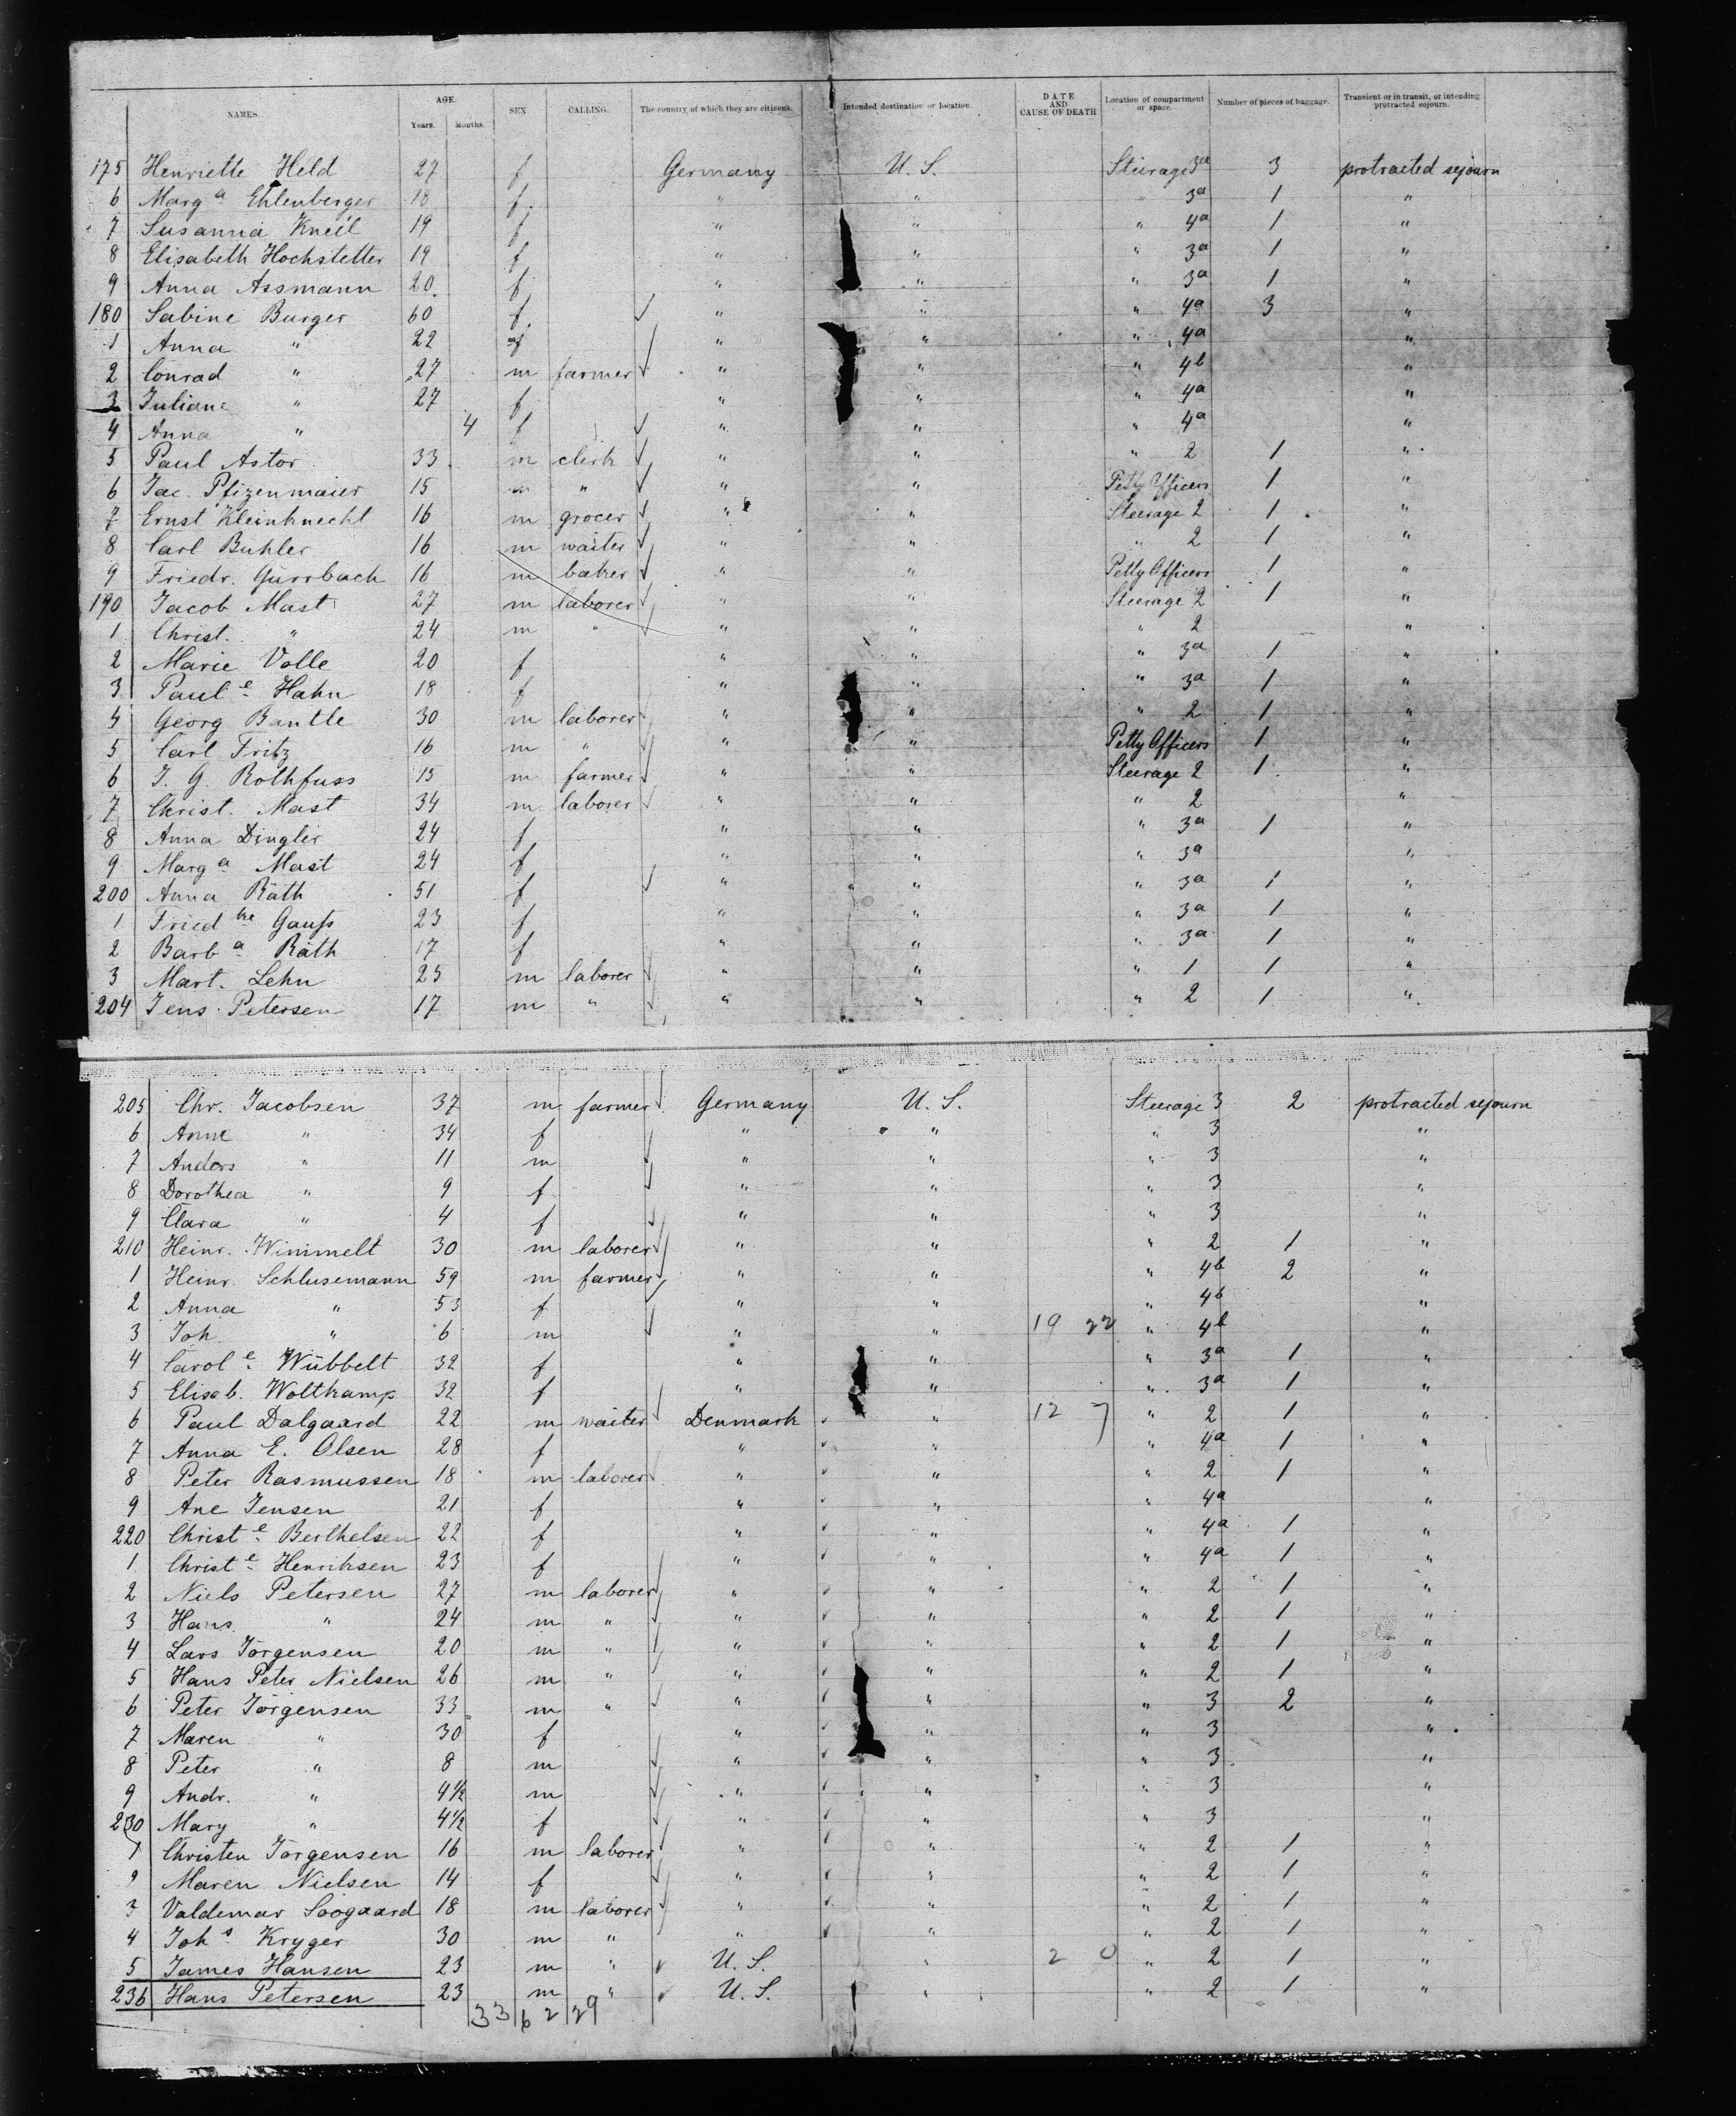 NAMES. AGE. Years. Months. SEX. CALLING. The country of which they are citizens. Intended destination or location. DATE AND CAUSE OF DEATH Location of compartment or space. Number of pieces of baggage. Transient or in transit, or intending protracted sojourn.
175 Henriette Held 27 f Germany U. S. Steerage 3a 3 protracted sejourn
6 Marga Ehlenberger 18 f " " " 3a 1 "
7 Susanna Kneil 19 f " " " 4a 1 "
8 Elisabeth Hochstetter 19 f " " " 3a 1 "
9 Anna Assmann 20 f " " " 3a 1 "
180 Sabine Burger 60 f " " " 4a 3 "
1 Anna " 22 f " " " 4a "
2 Conrad " 27 m farmer " " " 4b "
3 Juliane " 27 f " " " 4a "
4 Anna " 4 f " " " 4a "
5 Paul Astor 33 m clerk " " " 2 1 "
6 Jac. Pfizenmaier 15 m " " " Petty Officers 1 "
7 Ernst Kleinknecht 16 m grocer " " Steerage 2 1 "
8 Carl Buhler 16 m waiter " " " 2 1 "
9 Friedr. Gürrbach 16 m baker " " Petty Officers 1 "
190 Jacob Mast 27 m laborer " " Steerage 2 1 "
1 Christ. " 24 m " " " " 2 "
2 Marie Volle 20 f " " " 3a 1 "
3 Paule Hahn 18 f " " " 3a 1 "
4 Georg Bantle 30 m laborer " " " 2 1 "
5 Carl Fritz 16 m " " " Petty Officers 1 "
6 J. G. Rothfuss 15 m farmer " " Steerage 2 1 "
7 Christ. Mast 34 m laborer " " " 2 "
8 Anna Dingler 24 f " " " 3a 1 "
9 Marga Mast 24 f " " " 3a "
200 Anna Räth 51 f " " " 3a 1 "
1 Friedke Gauss 23 f " " " 3a 1 "
2 Barba Räth 17 f " " " 3a 1 "
3 Mart. Lehn 25 m laborer " " " 1 1 "
204 Jens Petersen 17 m " " " " 2 1 "
205 Chr. Jacobsen 37 m farmer Germany U. S. Steerage 3 2 protracted sejourn
6 Anne " 34 f " " " 3 "
7 Anders " 11 m " " " 3 "
8 Dorothea " 9 f " " " 3 "
9 Clara " 4 f " " " 3 "
210 Heinr. Wimmelt 30 m laborer " " " 2 1 "
1 Heinr. Schlusemann 59 m farmer " " " 4b 2 "
2 Anna " 53 f " " " 4b "
3 Joh. " 6 m " " 19 22 " 4b "
4 Carole Wübbelt 32 f " " " 3a 1 "
5 Elisab. Woltkamp 32 f " " " 3a 1 "
6 Paul Dalgaard 22 m waiter Denmark " 12 7 " 2 1 "
7 Anna E. Olsen 28 f " " " 4a 1 "
8 Peter Rasmussen 18 m laborer " " " 2 1 "
9 Ane Jensen 21 f " " " 4a "
220 Christe Berthelsen 22 f " " " 4a 1 "
1 Christe Henriksen 23 f " " " 4a 1 "
2 Niels Petersen 27 m laborer " " " 2 1 "
3 Hans " 24 m " " " " 2 1 "
4 Lars Jörgensen 20 m " " " " 2 1 "
5 Hans Peter Nielsen 26 m " " " " 2 1 "
6 Peter Jörgensen 33 m " " " " 3 2 "
7 Maren " 30 f " " " 3 "
8 Peter " 8 m " " " 3 "
9 Andr. " 4½ m " " " 3 "
230 Mary " 4½ f " " " 3 "
1 Christen Jörgensen 16 m laborer " " " 2 1 "
2 Maren Nielsen 14 f " " " 2 1 "
3 Valdemar Soogaard 18 m laborer " " " 2 1 "
4 Johs Kryger 30 m " " " " 2 1 "
5 James Hansen 23 m " U. S. " 2 0 " 2 1 "
236 Hans Petersen 23 m " U. S. " " 2 1 "
33 6 2 29